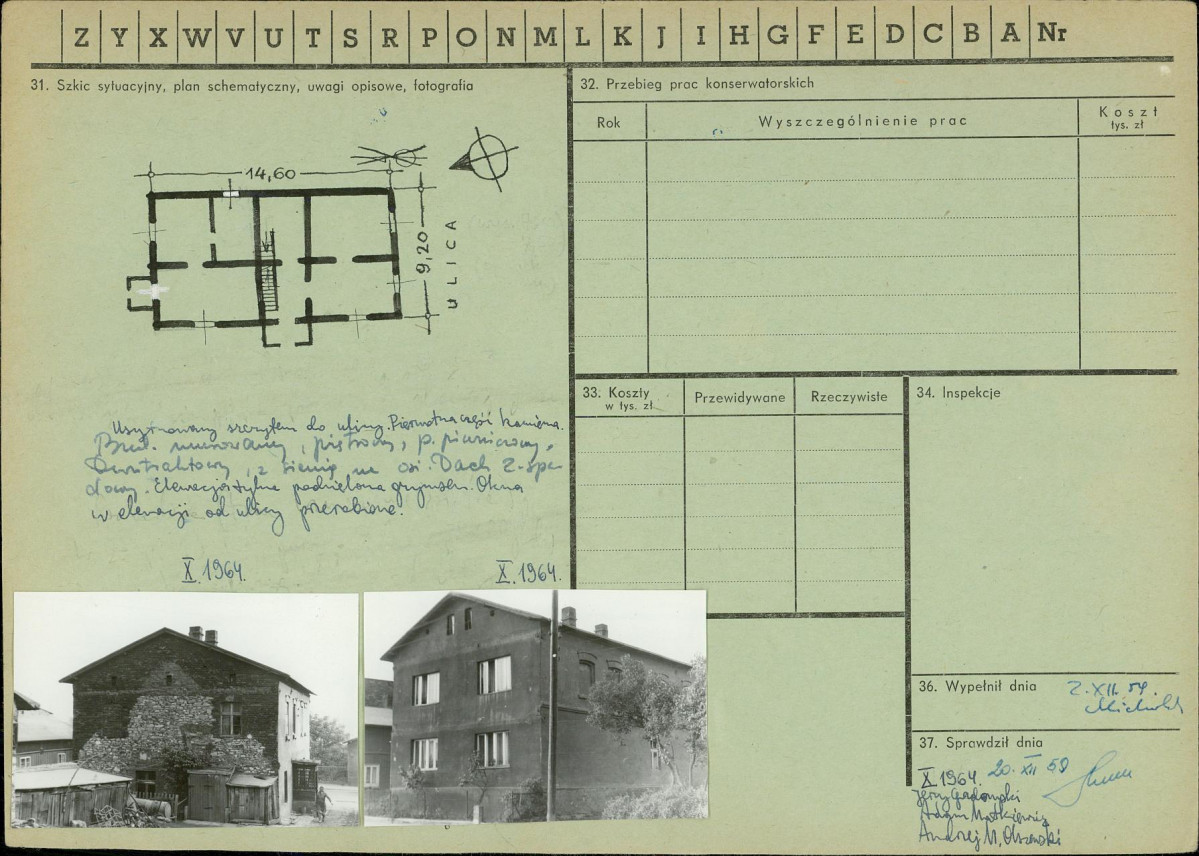 Z Y X W V U T S R P O N M L K J I H G F E D C B A Nr
31. Szkic sytuacyjny, plan schematyczny, uwagi opisowe, fotografia
14,60
9,20
ULICA
Usytuowany szczytem do ulicy. Pierwotna część kamienna.
Bud. murowany, piętrowy, p. piwniczony,
Dwutraktowy, z sienią na osi. Dach 2-spa-
dowy. Elewacja tylna podzielona gzymsem. Okna
w elewacji od ulicy przerobione.
X.1964.
X.1964.
32. Przebieg prac konserwatorskich
Rok
Wyszczególnienie prac
Koszt
tys. zł
33. Koszty
w tys. zł
Przewidywane
Rzeczywiste
34. Inspekcje
36. Wypełnił dnia
2.XII.59.
37. Sprawdził dnia
X 1964 20.XII 59
Jerzy
Adam
Andrzej M. Olszewski